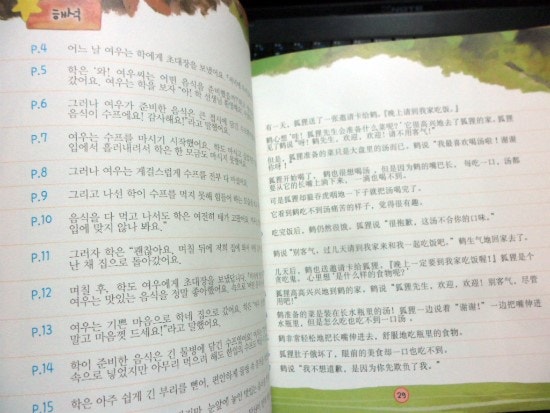 해석
P.4 어느 날 여우는 학에게 초대장을 보냈어요.
P.5 학은 '와! 여우씨는 어떤 음식을
갔어요. 여우는 학을 보자
P.6 그러나 여우가 준비한 음식은 큰 접시에
음식이 수프에요! 감사해요!"라고 말했어요.
P.7 여우는 수프를 마시기 시작했어요. 학도
입에서 흘러내려서 학은 한 모금도 마시지 못
P.8 그러나 여우는 게걸스럽게 수프를 전부 다
P.9 그리고 나선 학이 수프를 먹지 못해 힘들어 하는
P.10 음식을 다 먹고 나서도 학은 여전히 배가 고팠어요.
입에 맞지 않나 봐요."
P.11 그러자 학은 "괜찮아요. 며칠 뒤에 저희 집에
난 채 집으로 돌아갔어요.
P.12 며칠 후, 학도 여우에게 초대장을 보냈답니다.
여우는 맛있는 음식을 정말 좋아했어요.
P.13 여우는 기쁜 마음으로 학네 집으로 갔어요.
말고 마음껏 드세요!"라고 말했어요.
P.14 학이 준비한 음식은 긴 물병에 담긴 수프였어요.
속으로 넣었지만 아무리 먹으려 해도
P.15 학은 아주 쉽게 긴 부리를 뻗어, 편안하게
有一天，狐狸送了一张邀请卡给鹤。『晚上请到我家吃饭。』
鹤心想"哇！狐狸先生会准备什么菜呢？"它很高兴地去了狐狸的家。狐狸
见了鹤说"呀！鹤先生，欢迎，欢迎！请不用客气！"
但是，狐狸准备的菜只是大盘里的汤而已。鹤说"我最喜欢喝汤啦！谢谢
你呀！"
狐狸开始喝了，鹤也很想喝汤，但是因为鹤的嘴巴长，每吃一口，汤都
要从它的长嘴上滴下来，一滴也喝不到。
可是狐狸却狼吞虎咽地一下子就把汤喝完了。
它看到鹤吃不到汤痛苦的样子，觉得很有趣。
吃完饭后，鹤仍然很饿。狐狸说"很抱歉，这汤不合你的口味。"
鹤说"别客气，过几天请到我家来和我一起吃饭吧。"鹤生气地回家去了。
几天后，鹤也送邀请卡给狐狸。『晚上一定要到我家吃饭喔！』狐狸是个
贪吃鬼，心里想"是什么样的食物呢？"
狐狸高高兴兴地到鹤的家。鹤说"狐狸先生，欢迎，欢迎！别客气，尽管
用吧！"
鹤准备的菜是装在长水瓶里的汤！狐狸一边说着"谢谢！"一边把嘴伸进
水瓶里，但是怎么吃也吃不到一口汤。
鹤非常轻松地把长嘴伸进去，舒服地吃瓶里的食物。
狐狸肚子饿坏了，眼前的美食却一口也吃不到。
鹤说"我不想道歉，是因为你先欺负了我。"
29